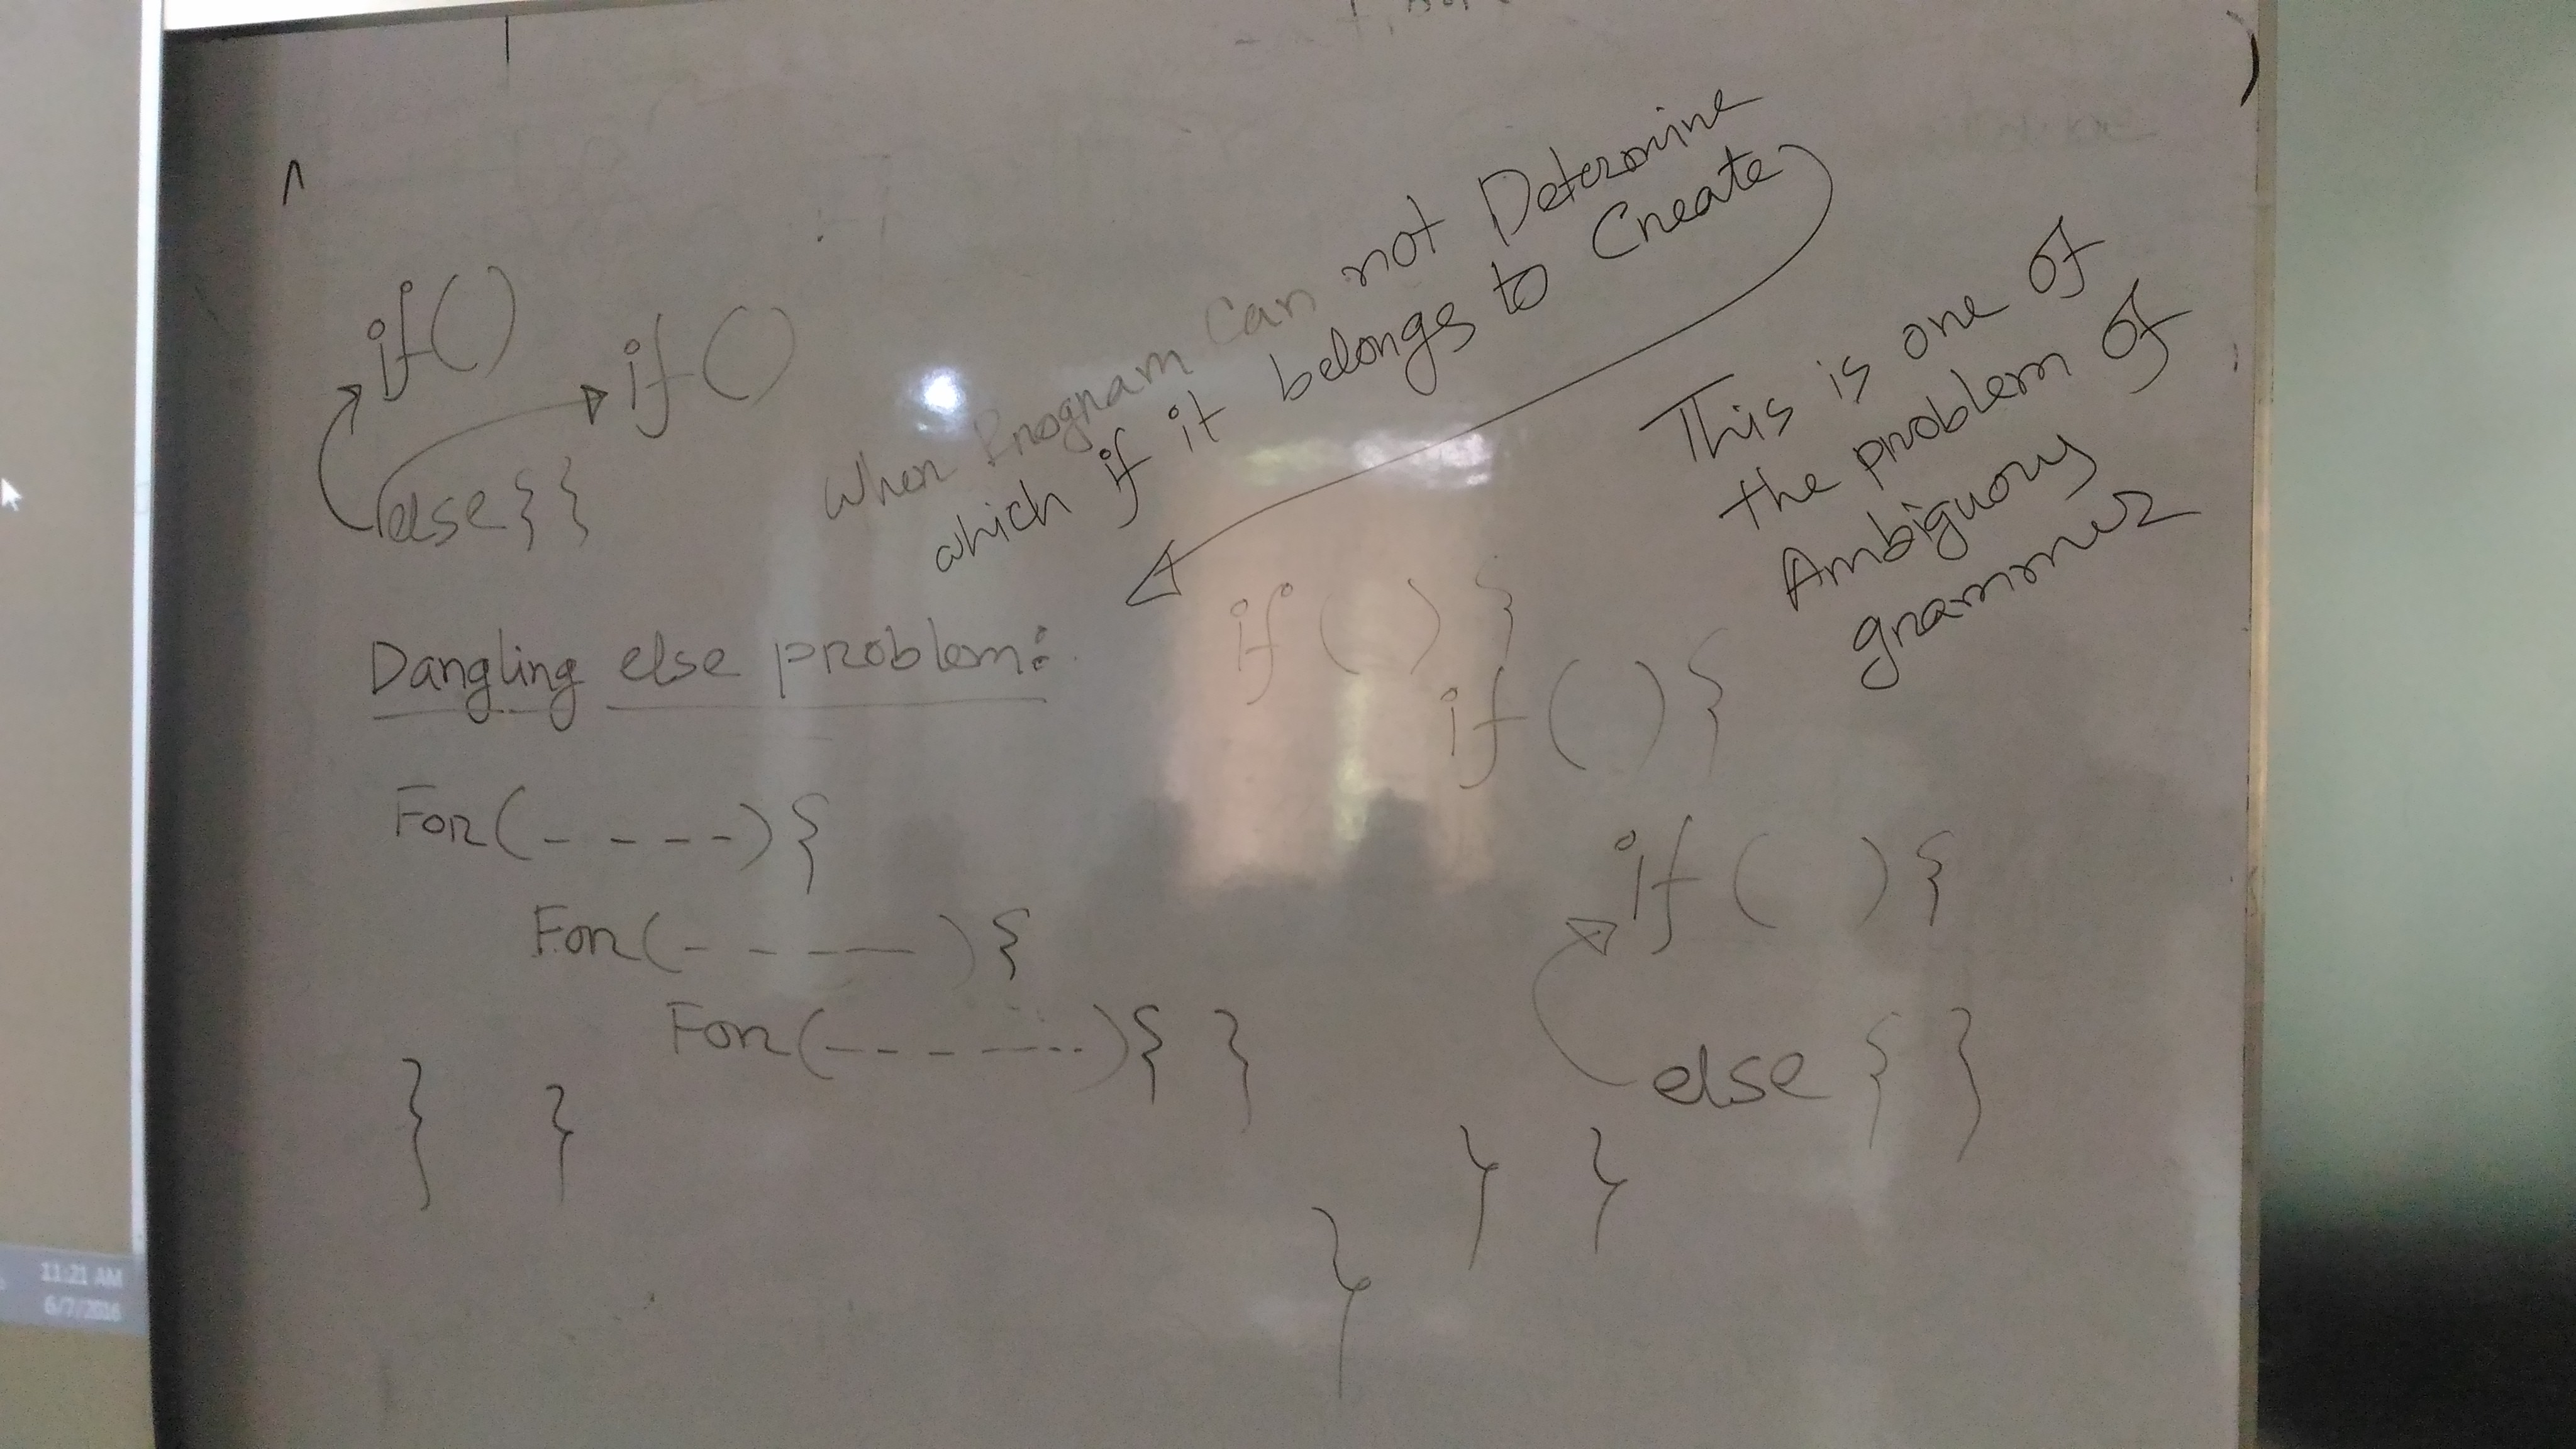 if()
if()
else{}
When Program Can not Determine
which if it belongs to Create
This is one of
the problem of
Ambiguous
grammer
Dangling else problem:
For(- - - -){
For(- - - —){
For(- - - - - - -){ }
} }
if ( ) {
if ( ) {
if ( ) {
else { }
} }
}
11:21 AM
6/7/2016